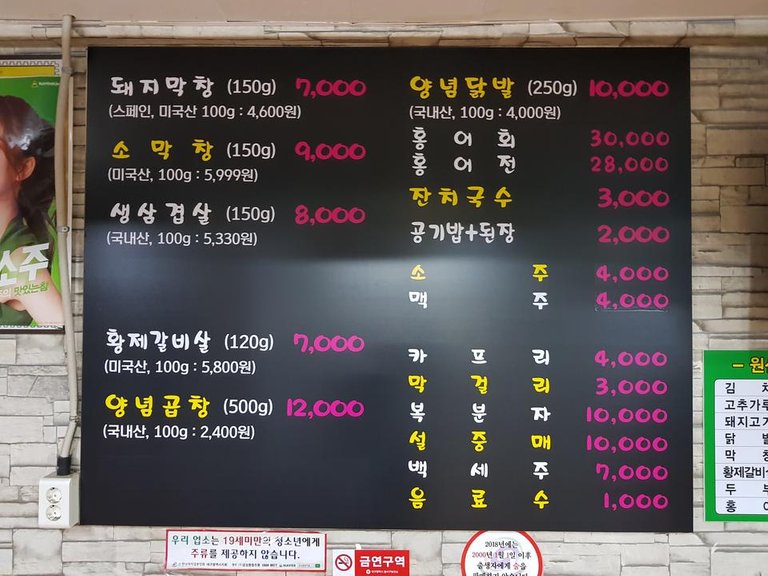 돼지막창 (150g) 7,000
(스페인, 미국산 100g : 4,600원)
소 막 창 (150g) 9,000
(미국산, 100g : 5,999원)
생삼겹살 (150g) 8,000
(국내산, 100g : 5,330원)
황제갈비살 (120g) 7,000
(미국산, 100g : 5,800원)
양념곱창 (500g) 12,000
(국내산, 100g : 2,400원)
양념닭발 (250g) 10,000
(국내산, 100g : 4,000원)
홍 어 회 30,000
홍 어 전 28,000
잔치국수 3,000
공기밥+된장 2,000
소 주 4,000
맥 주 4,000
카 프 리 4,000
막 걸 리 3,000
복 분 자 10,000
설 중 매 10,000
백 세 주 7,000
음 료 수 1,000
소주
맛있는참
- 원
김
고추가루
돼지고기
닭
막
황제갈비
두
홍
우리 업소는 19세미만의 청소년에게
주류를 제공하지 않습니다.
금연구역
2018년에는
2000년 1월 1일 이후
출생자에게 술을